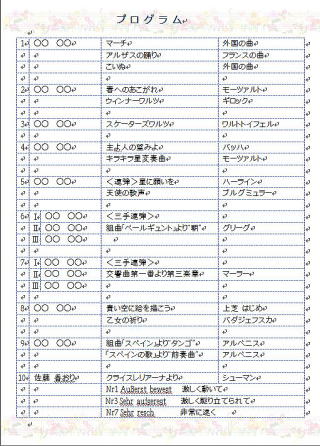 プログラム
1 〇〇 〇〇 マーチ 外国の曲
アルザスの踊り フランスの曲
こいぬ 外国の曲
2 〇〇 〇〇 春へのあこがれ モーツァルト
ウィンナーワルツ ギロック
3 〇〇 〇〇 スケーターズワルツ ワルトトイフェル
4 〇〇 〇〇 主よ人の望みよ バッハ
キラキラ星変奏曲 モーツァルト
5 〇〇 〇〇 <連弾>星に願いを ハーライン
天使の歌声 ブルグミュラー
6 Ⅰ 〇〇 〇〇 <三手連弾>
Ⅱ 〇〇 〇〇 組曲「ペールギュント」より"朝" グリーグ
Ⅲ 〇〇 〇〇
7 Ⅰ 〇〇 〇〇 <三手連弾>
Ⅱ 〇〇 〇〇 交響曲第一番より第三楽章 マーラー
Ⅲ 〇〇 〇〇
8 〇〇 〇〇 青い空に絵を描こう 上芝 はじめ
乙女の祈り バダジェフスカ
9 〇〇 〇〇 組曲「スペイン」より"タンゴ" アルベニス
「スペインの歌」より"前奏曲" アルベニス
10 佐藤 香おり クライスレリアーナより シューマン
Nr1 Äußerst bewegt 激しく動いて
Nr3 Sehr aufgeregt 激しく駆り立てられて
Nr7 Sehr rasch 非常に速く